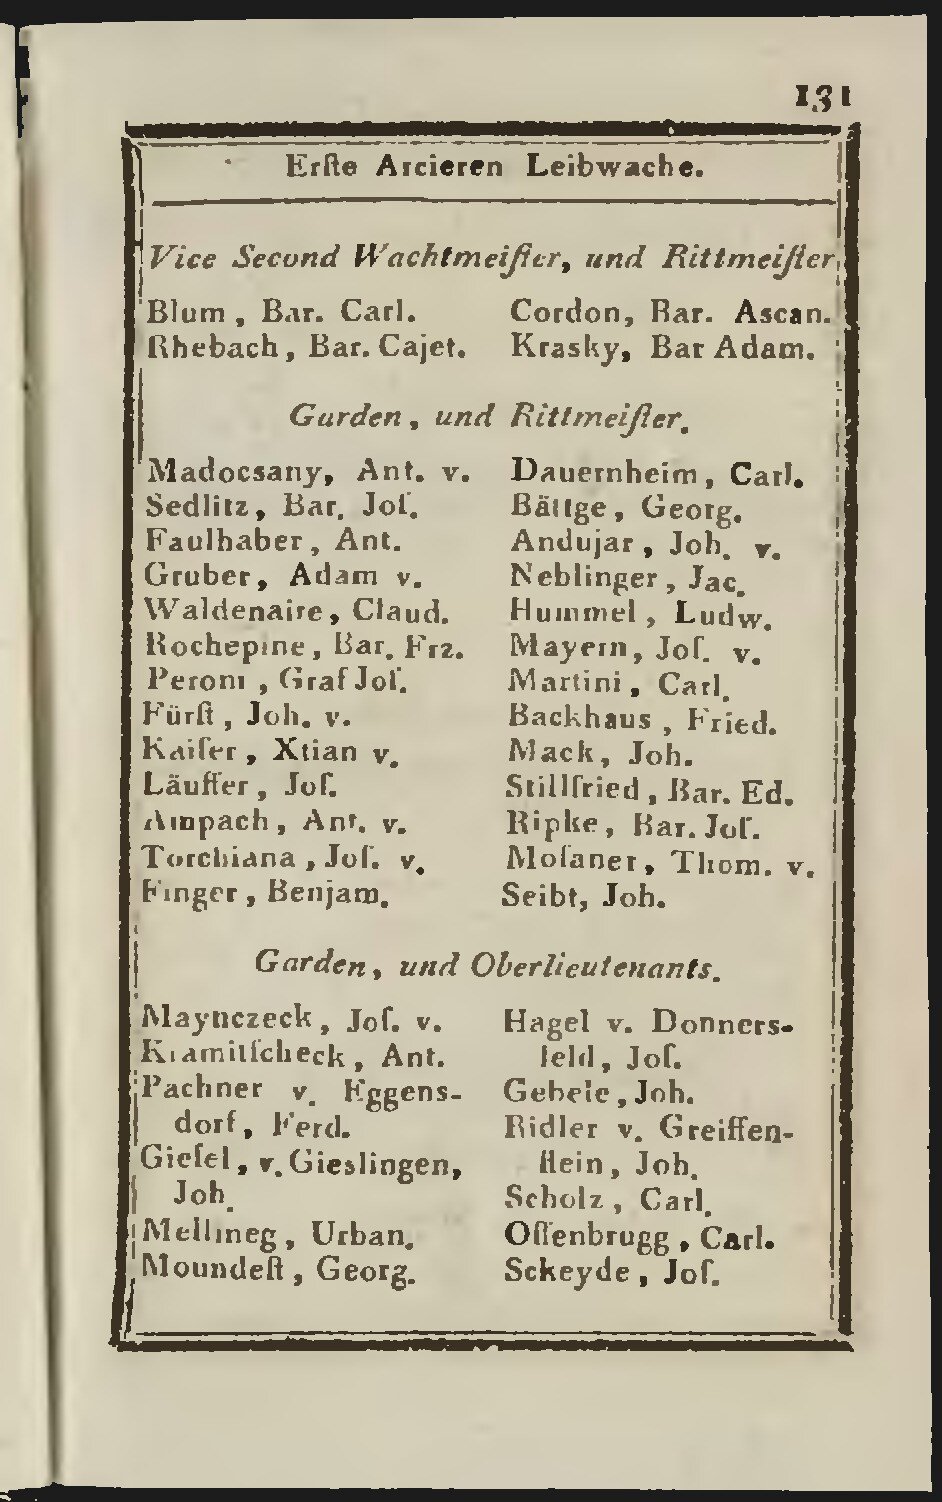 131
Erſte Arcieren Leibwache.
Vice Second Wachtmeiſter, und Rittmeiſter
Blum, Bar. Carl.
Rhebach, Bar. Cajet.
Cordon, Bar. Ascan.
Krasky, Bar Adam.
Garden, und Rittmeiſter.
Madocsany, Ant. v.
Sedlitz, Bar. Joſ.
Faulhaber, Ant.
Gruber, Adam v.
Waldenaire, Claud.
Rochepine, Bar. Frz.
Peroni, Graf Joſ.
Fürſt, Joh. v.
Kaiſer, Xtian v.
Läuffer, Joſ.
Ampach, Ant. v.
Torchiana, Joſ. v.
Finger, Benjam.
Dauernheim, Carl.
Bättge, Georg.
Andujar, Joh. v.
Neblinger, Jac.
Hummel, Ludw.
Mayern, Joſ. v.
Martini, Carl.
Backhaus, Fried.
Mack, Joh.
Stillfried, Bar. Ed.
Ripke, Bar. Joſ.
Moſaner, Thom. v.
Seibt, Joh.
Garden, und Oberlieutenants.
Maynczeck, Joſ. v.
Kramilſcheck, Ant.
Pachner v. Eggens-
dorf, Ferd.
Gieſel, v. Gieslingen,
Joh.
Mellineg, Urban.
Moundeſt, Georg.
Hagel v. Donners-
feld, Joſ.
Gebele, Joh.
Ridler v. Greiffen-
ſtein, Joh.
Scholz, Carl.
Oſſenbrugg, Carl.
Sckeyde, Joſ.